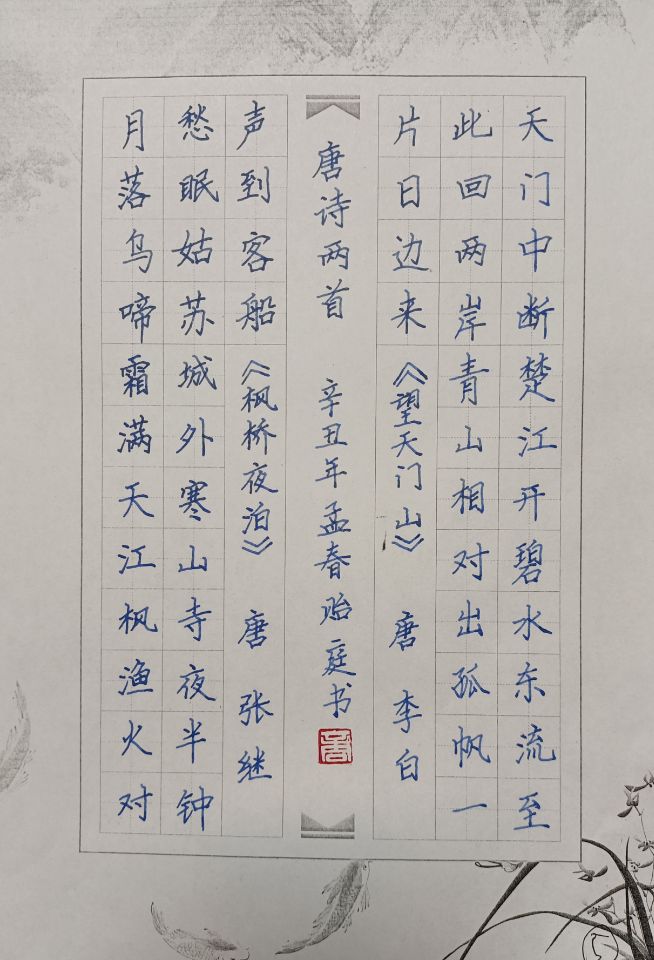 天门中断楚江开碧水东流至
此回两岸青山相对出孤帆一
片日边来《望天门山》 唐 李白
唐诗两首 辛丑年孟春 贻庭书
月落乌啼霜满天江枫渔火对
愁眠姑苏城外寒山寺夜半钟
声到客船《枫桥夜泊》 唐 张继